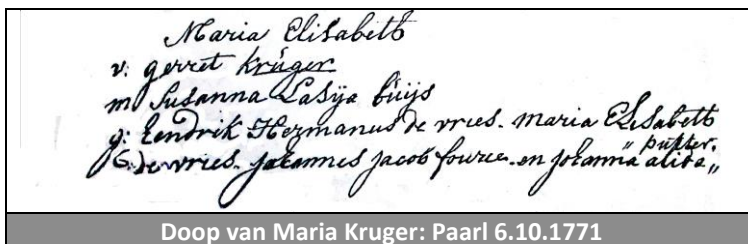 Maria Elisabeth
v: gerret Krüger
m Susanna Lasya büijs
g: Hendrik Hermanus de vries. maria Elisabeth
de vries. johannes jacob fourie. en johanna alida „
„ putter.
Doop van Maria Kruger: Paarl 6.10.1771